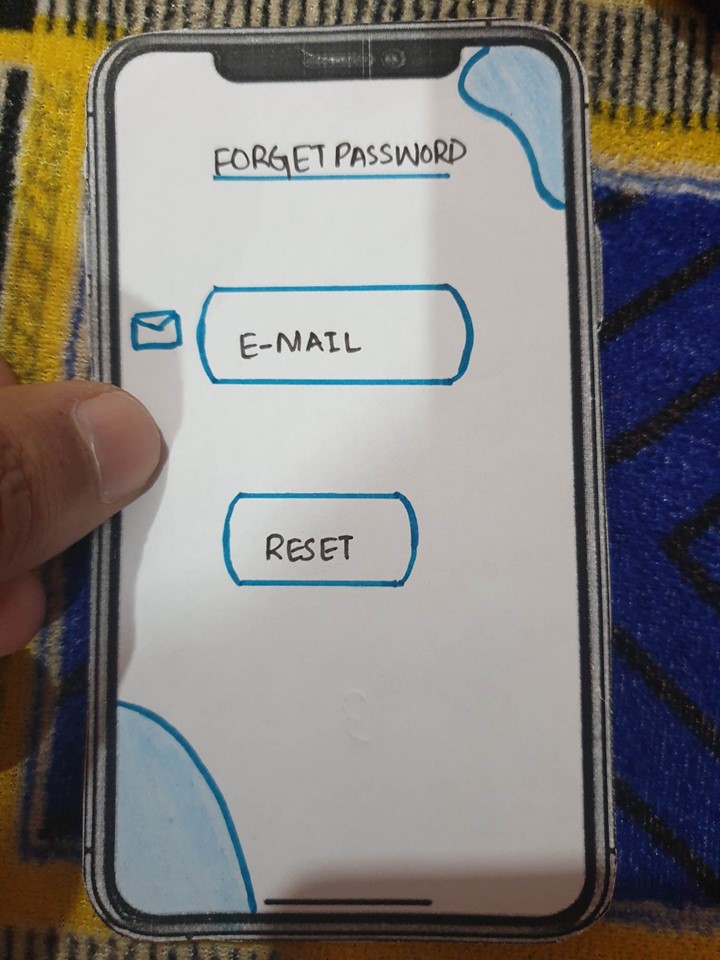 FORGET PASSWORD
E-MAIL
RESET